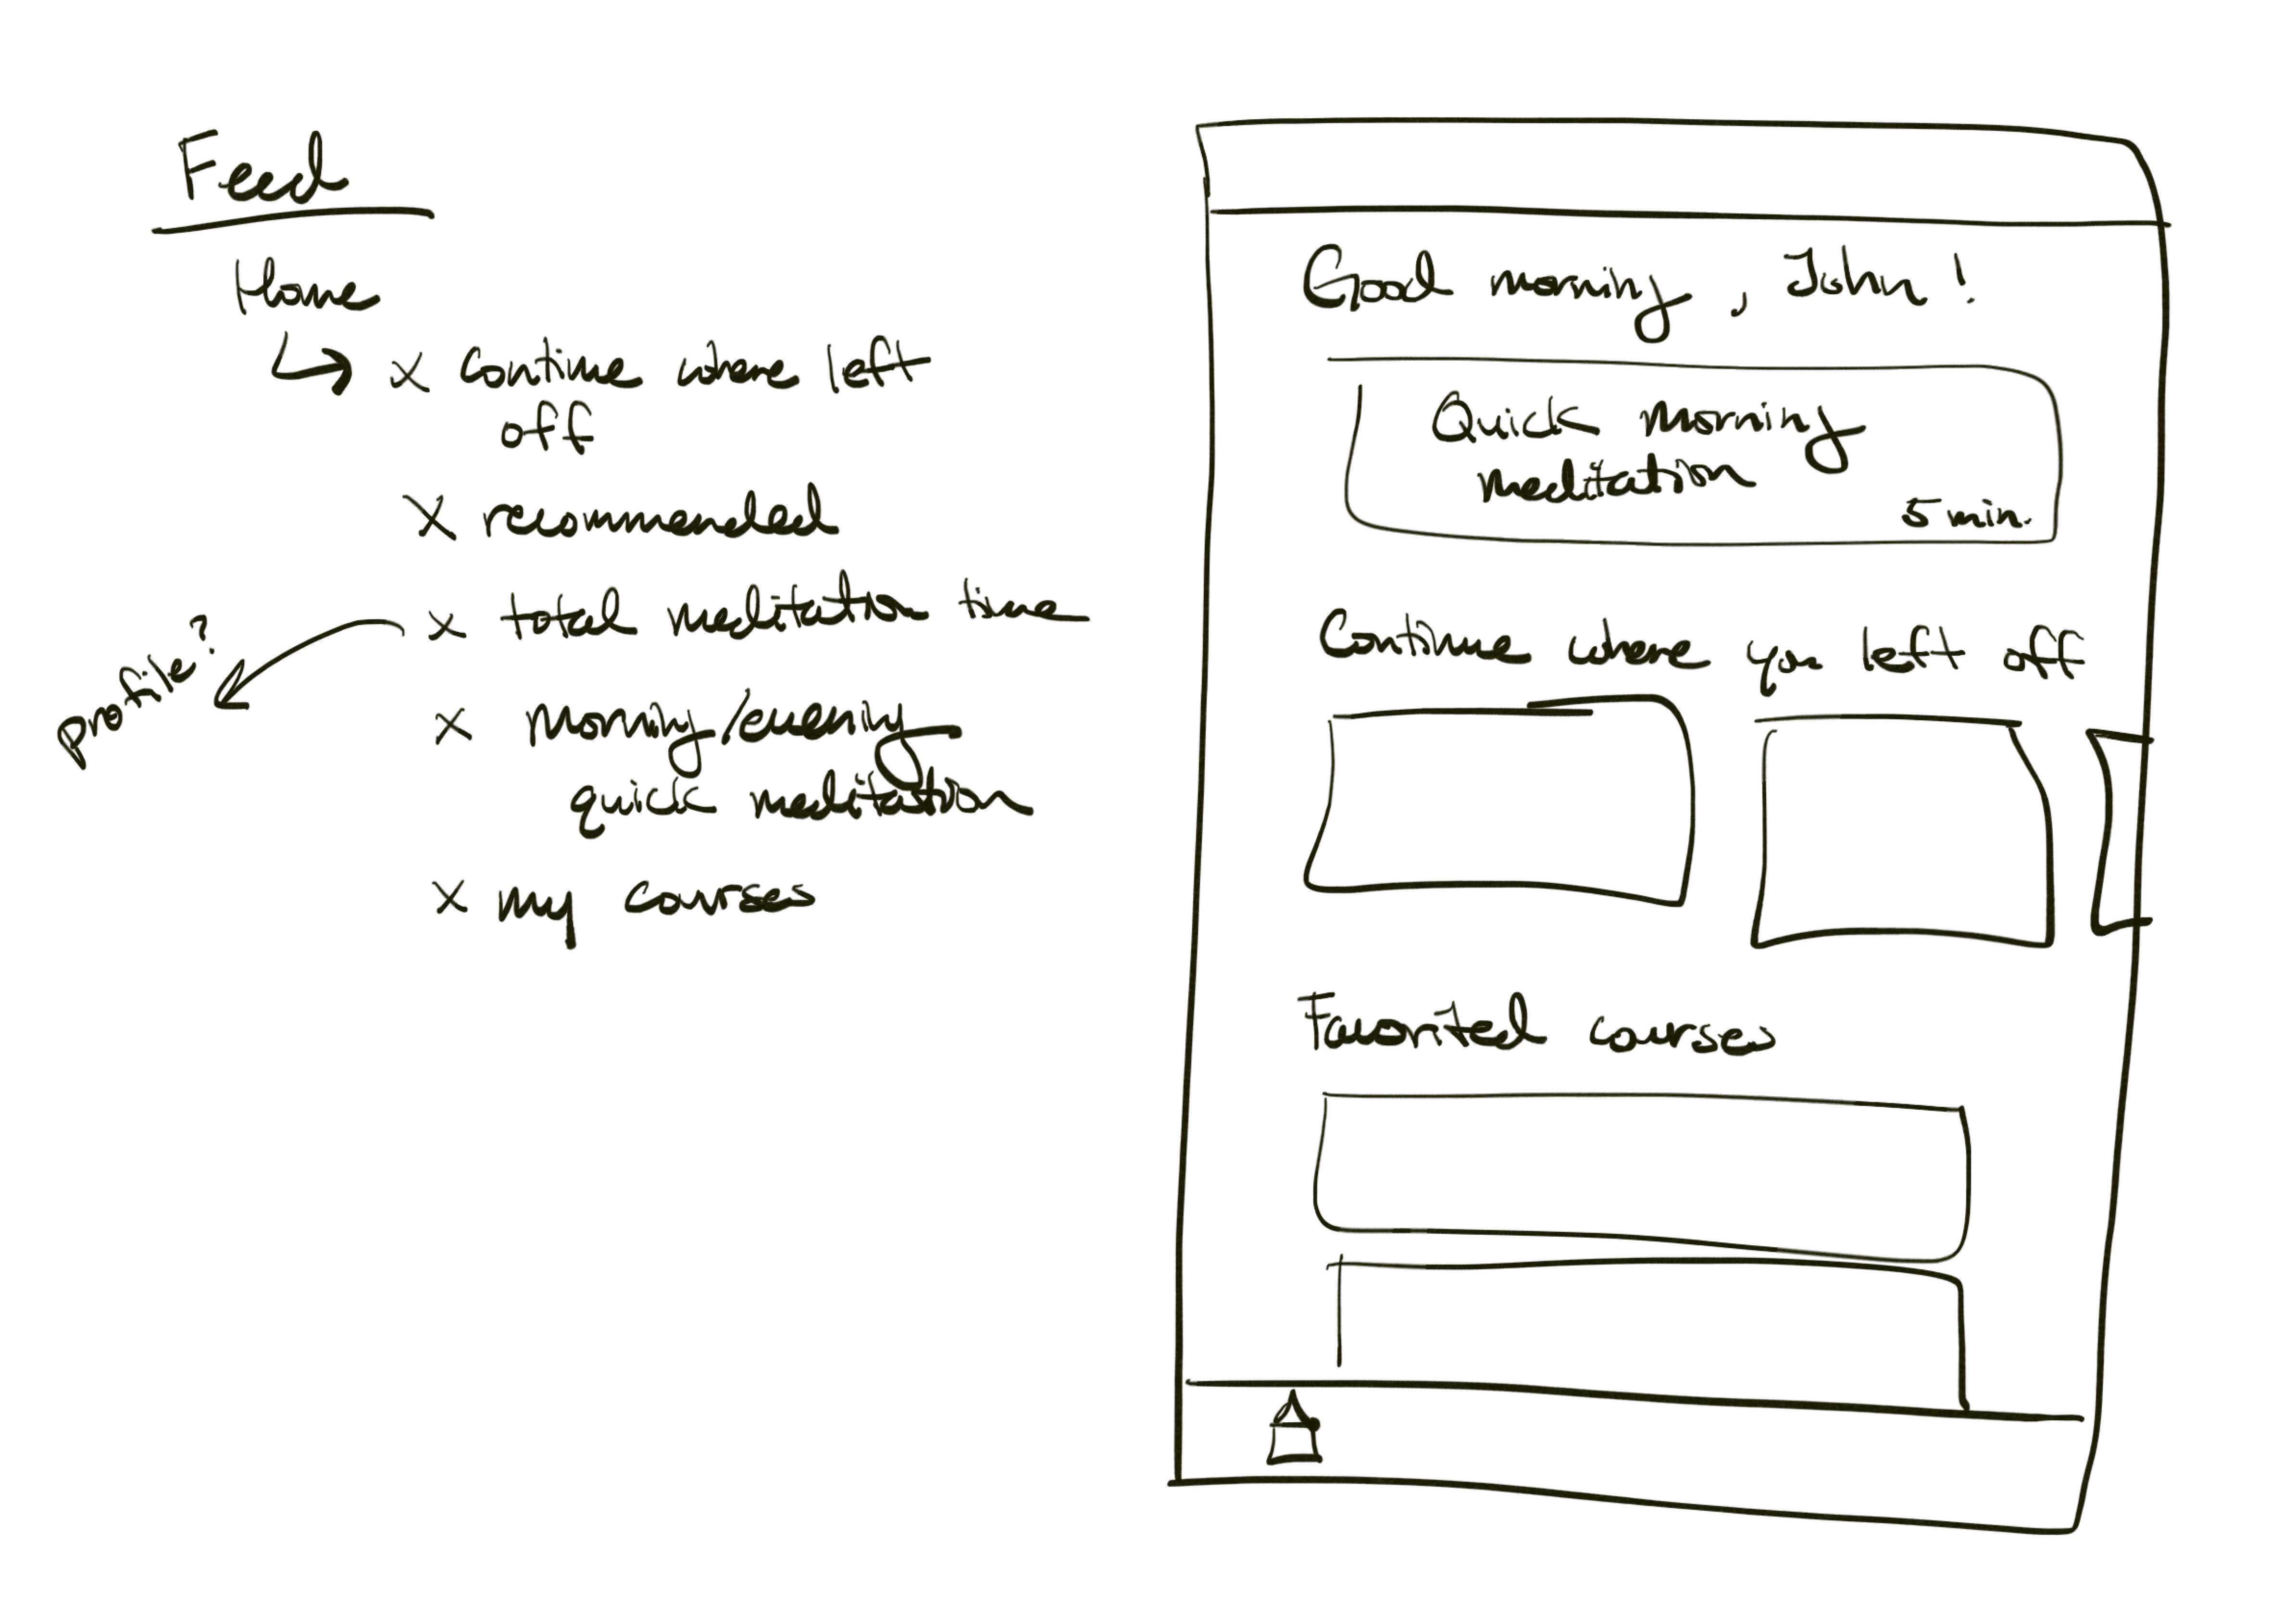 Feed
Home
x continue where left
off
x recommended
x total meditation time
profile?
x morning/evening
quick meditation
x my courses
Good morning, John!
Quick morning
meditation
5 min.
Continue where you left off
Favorited courses